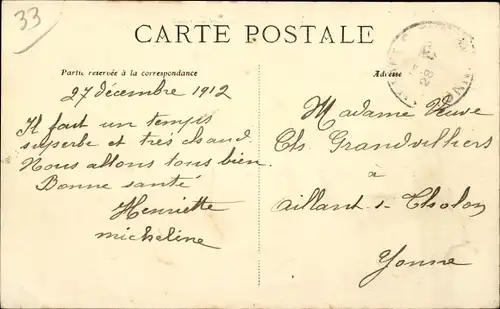 33
CARTE POSTALE
Partie réservée à la correspondance
Adresse
27 décembre 1912
Il fait un temps
superbe et très chaud.
Nous allons tous bien.
Bonne santé
Henriette
micheline
Madame Veuve
Chs Grandvilliers
à
aillant-s-Tholon
Yonne
28